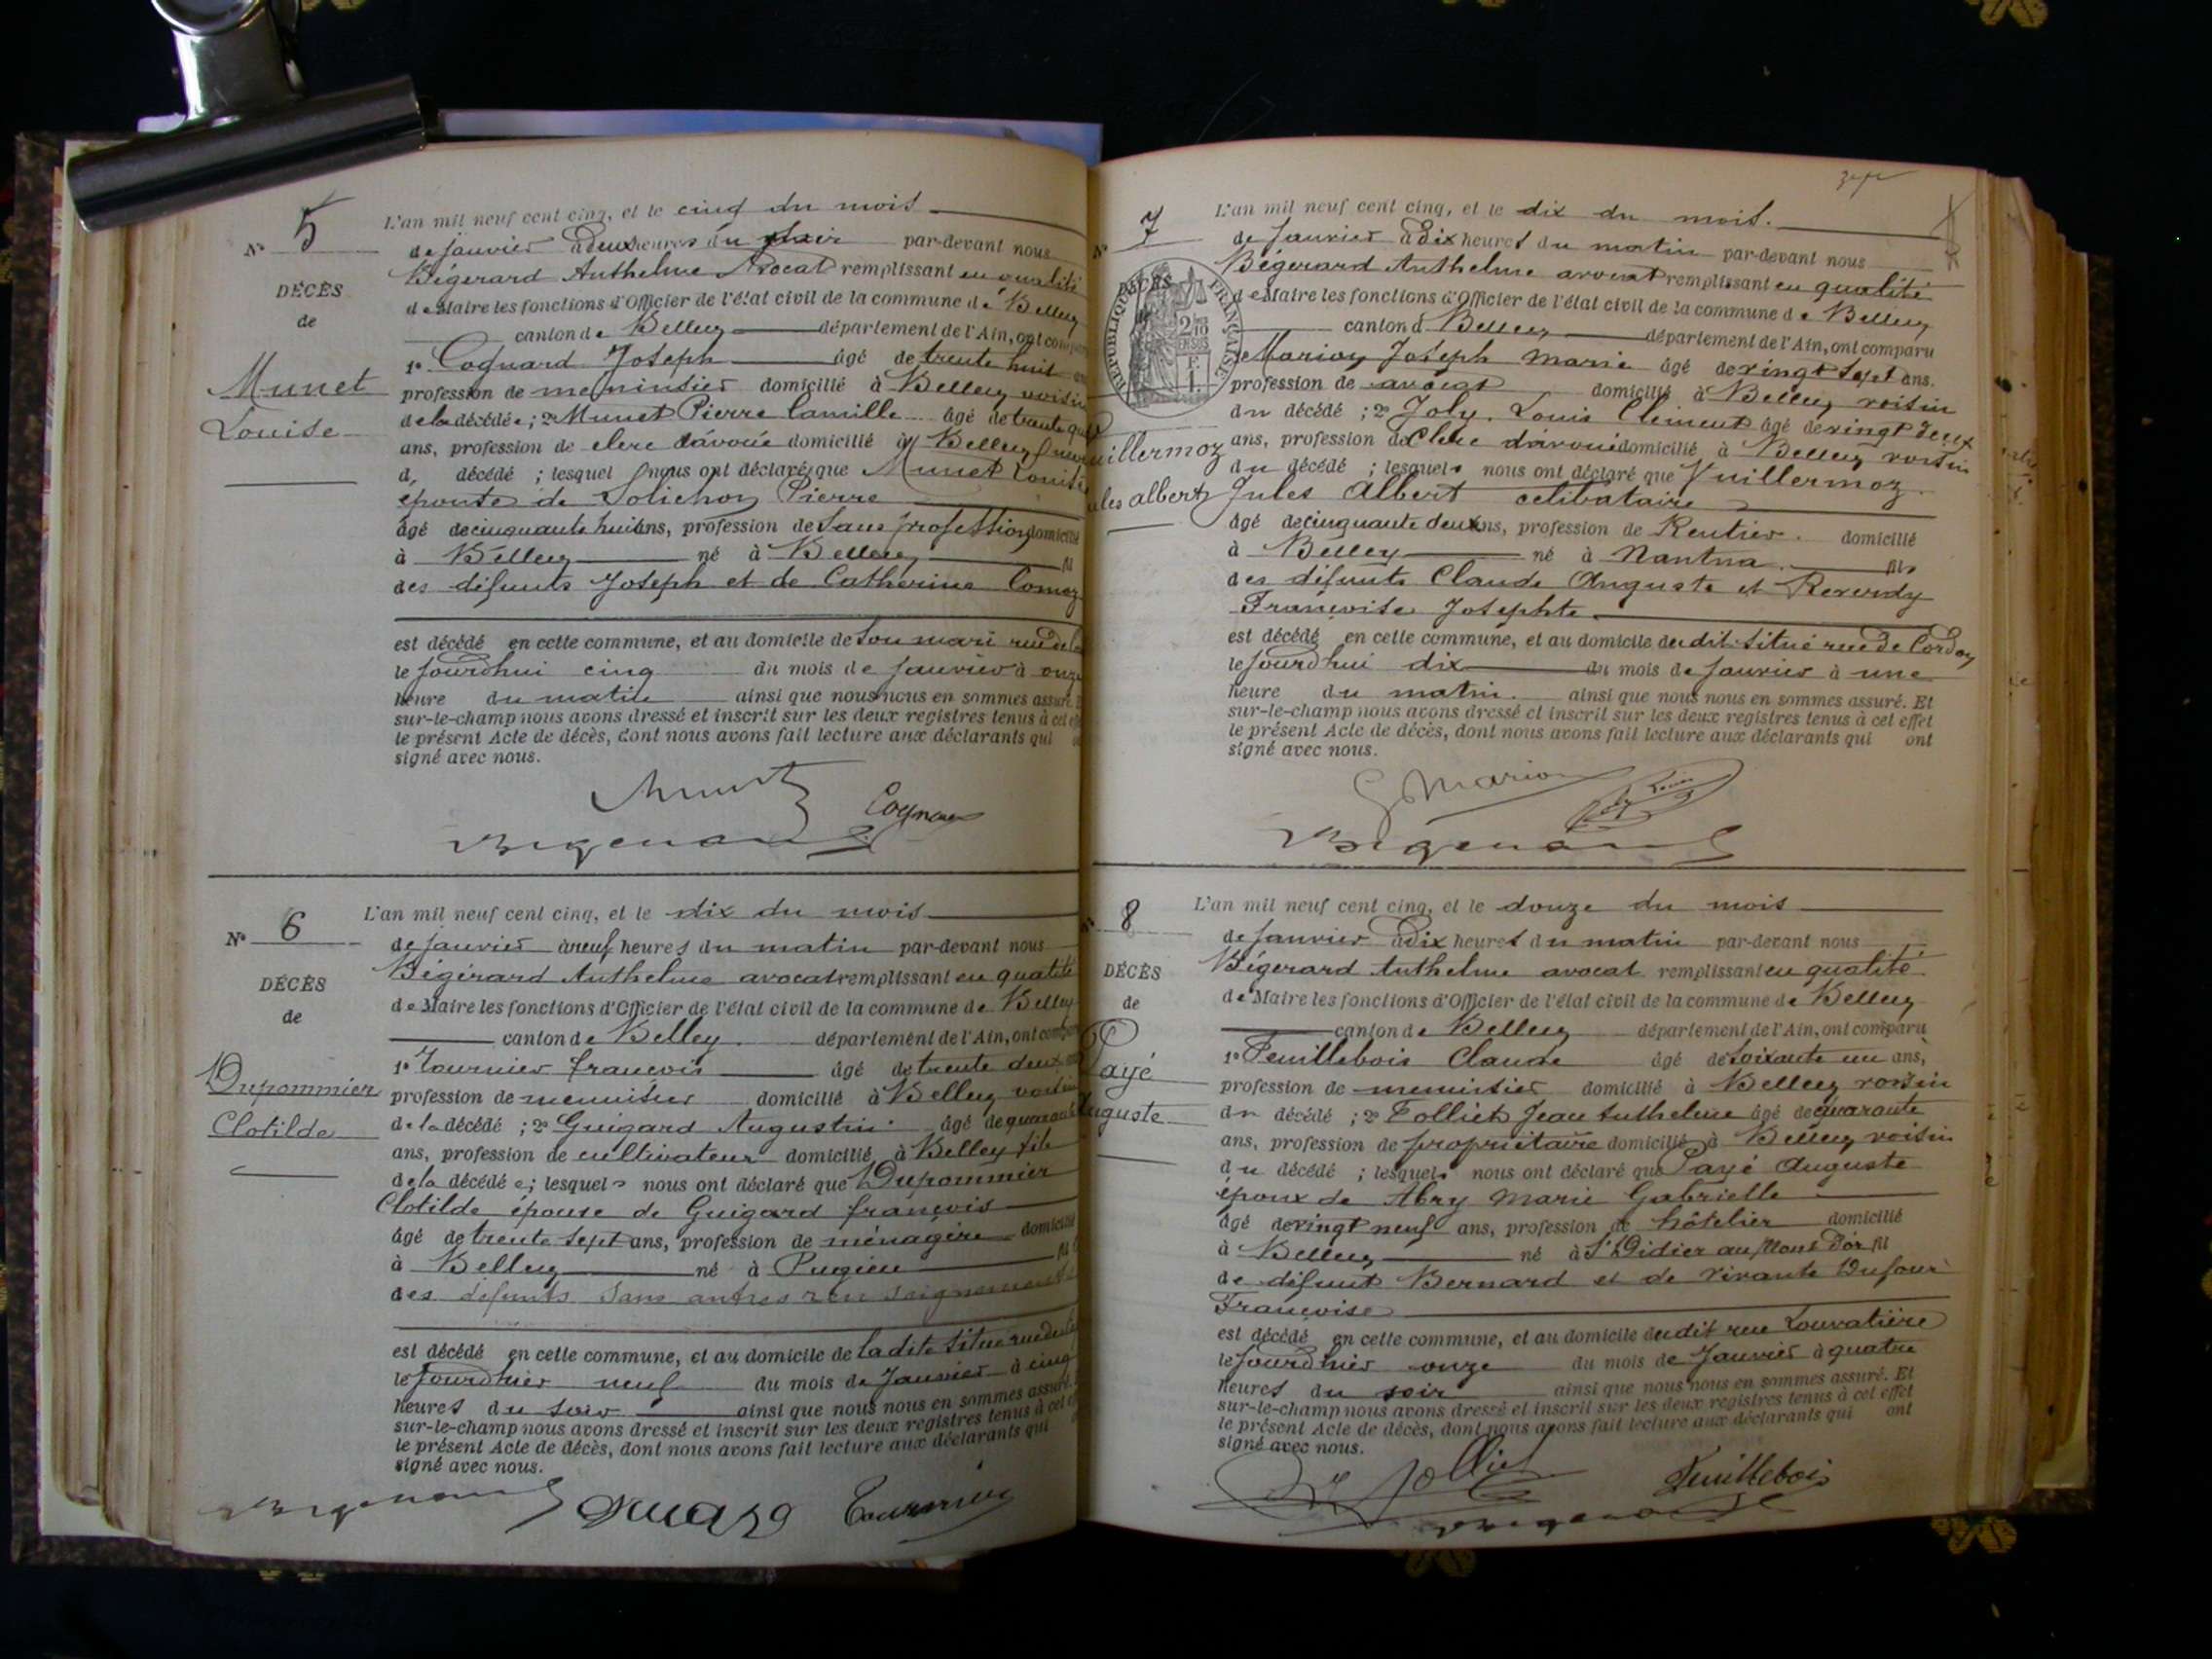 N° 5
DÉCÈS
de
Munet
Louise
L'an mil neuf cent cinq, et le cinq du mois
de janvier à deux heures du soir par-devant nous
Bégerard Anthelme Avocat remplissant en qualité
de Maire les fonctions d'Officier de l'état civil de la commune de Belley
canton de Belley département de l'Ain, ont comparu
1° Cognard Joseph âgé de trente huit ans
profession de menuisier domicilié à Belley voisin
de la décédée; 2° Munet Pierre Camille âgé de trente
ans, profession de clerc d'avoué domicilié à Belley
d décédé ; lesquel nous ont déclaré que Munet Louise
épouse de Solichon Pierre
âgé de cinquante huit ans, profession de sans profession domicilié
à Belley né à Belley fil
des défunts Joseph et de Catherine
est décédé en cette commune, et au domicile de son mari rue de
le jourd'hui cinq du mois de janvier à onze
heure du matin ainsi que nous nous en sommes assuré. Et
sur-le-champ nous avons dressé et inscrit sur les deux registres tenus à cet effet
le présent Acte de décès, dont nous avons fait lecture aux déclarants qui
signé avec nous.
Munet
Cognard
Bégerard
N° 6
DÉCÈS
de
Dupommier
Clotilde
L'an mil neuf cent cinq, et le dix du mois
de janvier à neuf heures du matin par-devant nous
Bégérard Anthelme avocat remplissant en qualité
de Maire les fonctions d'Officier de l'état civil de la commune de Belley
canton de Belley département de l'Ain, ont comparu
1° Tournier françois âgé de trente deux ans
profession de menuisier domicilié à Belley voisin
de la décédé ; 2° Guigard Augustin âgé de quarante
ans, profession de cultivateur domicilié à Belley
de la décédé e; lesquels nous ont déclaré que Dupommier
Clotilde épouse de Guigard françois
âgé de trente sept ans, profession de ménagère domicilié
à Belley né à Pugieu fil
des défunts sans autres renseignements
est décédé en cette commune, et au domicile de la dite situé rue
le jourd'hier neuf du mois de Janvier à cinq
heures du soir ainsi que nous nous en sommes assuré.
sur-le-champ nous avons dressé et inscrit sur les deux registres tenus à cet
le présent Acte de décès, dont nous avons fait lecture aux déclarants qui
signé avec nous.
Bégerard
Tournier
N° 7
DÉCÈS
RÉPUBLIQUE FRANÇAISE
uillermoz
ules albert
L'an mil neuf cent cinq, et le dix du mois.
de janvier à dix heures du matin par-devant nous
Bégerard Anthelme avocat remplissant en qualité
de Maire les fonctions d'Officier de l'état civil de la commune de Belley
canton d Belley département de l'Ain, ont comparu
1° Marion Joseph marie âgé de vingt sept ans.
profession de avocat domicilié à Belley voisin
du décédé ; 2° Joly Louis Clément âgé de vingt deux
ans, profession de Clerc d'avoué domicilié à Belley voisin
du décédé ; lesquels nous ont déclaré que Vuillermoz
Jules Albert celibataire
âgé de cinquante deux ans, profession de Rentier. domicilié
à Belley né à Nantua fils
des défunts Claude Auguste et Reverdy
Françoise Josephte
est décédé en cette commune, et au domicile dudit situé rue de Cordon
le jourd'hui dix du mois de janvier à une
heure du matin. ainsi que nous nous en sommes assuré. Et
sur-le-champ nous avons dressé et inscrit sur les deux registres tenus à cet effet
le présent Acte de décès, dont nous avons fait lecture aux déclarants qui ont
signé avec nous.
Marion
Bégerard
N° 8
DÉCÈS
de
Payé
Auguste
L'an mil neuf cent cinq, et le douze du mois
de janvier à dix heures du matin par-devant nous
Bégerard Anthelme avocat remplissant en qualité
de Maire les fonctions d'Officier de l'état civil de la commune de Belley
canton de Belley département de l'Ain, ont comparu
1° Feuillebois Claude âgé de soixante un ans,
profession de menuisier domicilié à Belley voisin
du décédé ; 2° Folliet Jean Anthelme âgé de quarante
ans, profession de propriétaire domicilié à Belley voisin
du décédé ; lesquels nous ont déclaré que Payé Auguste
époux de Abry Marie Gabrielle
âgé de vingt neuf ans, profession de hôtelier domicilié
à Belley né à St Didier au Mont d'or fil
de défunt Bernard et de vivante Dufour
Françoise
est décédé en cette commune, et au domicile dudit rue Louvatière
le jourd'hier onze du mois de Janvier à quatre
heures du soir ainsi que nous nous en sommes assuré. Et
sur-le-champ nous avons dressé et inscrit sur les deux registres tenus à cet effet
le présent Acte de décès, dont nous avons fait lecture aux déclarants qui ont
signé avec nous.
Folliet
Feuillebois
Bégerard